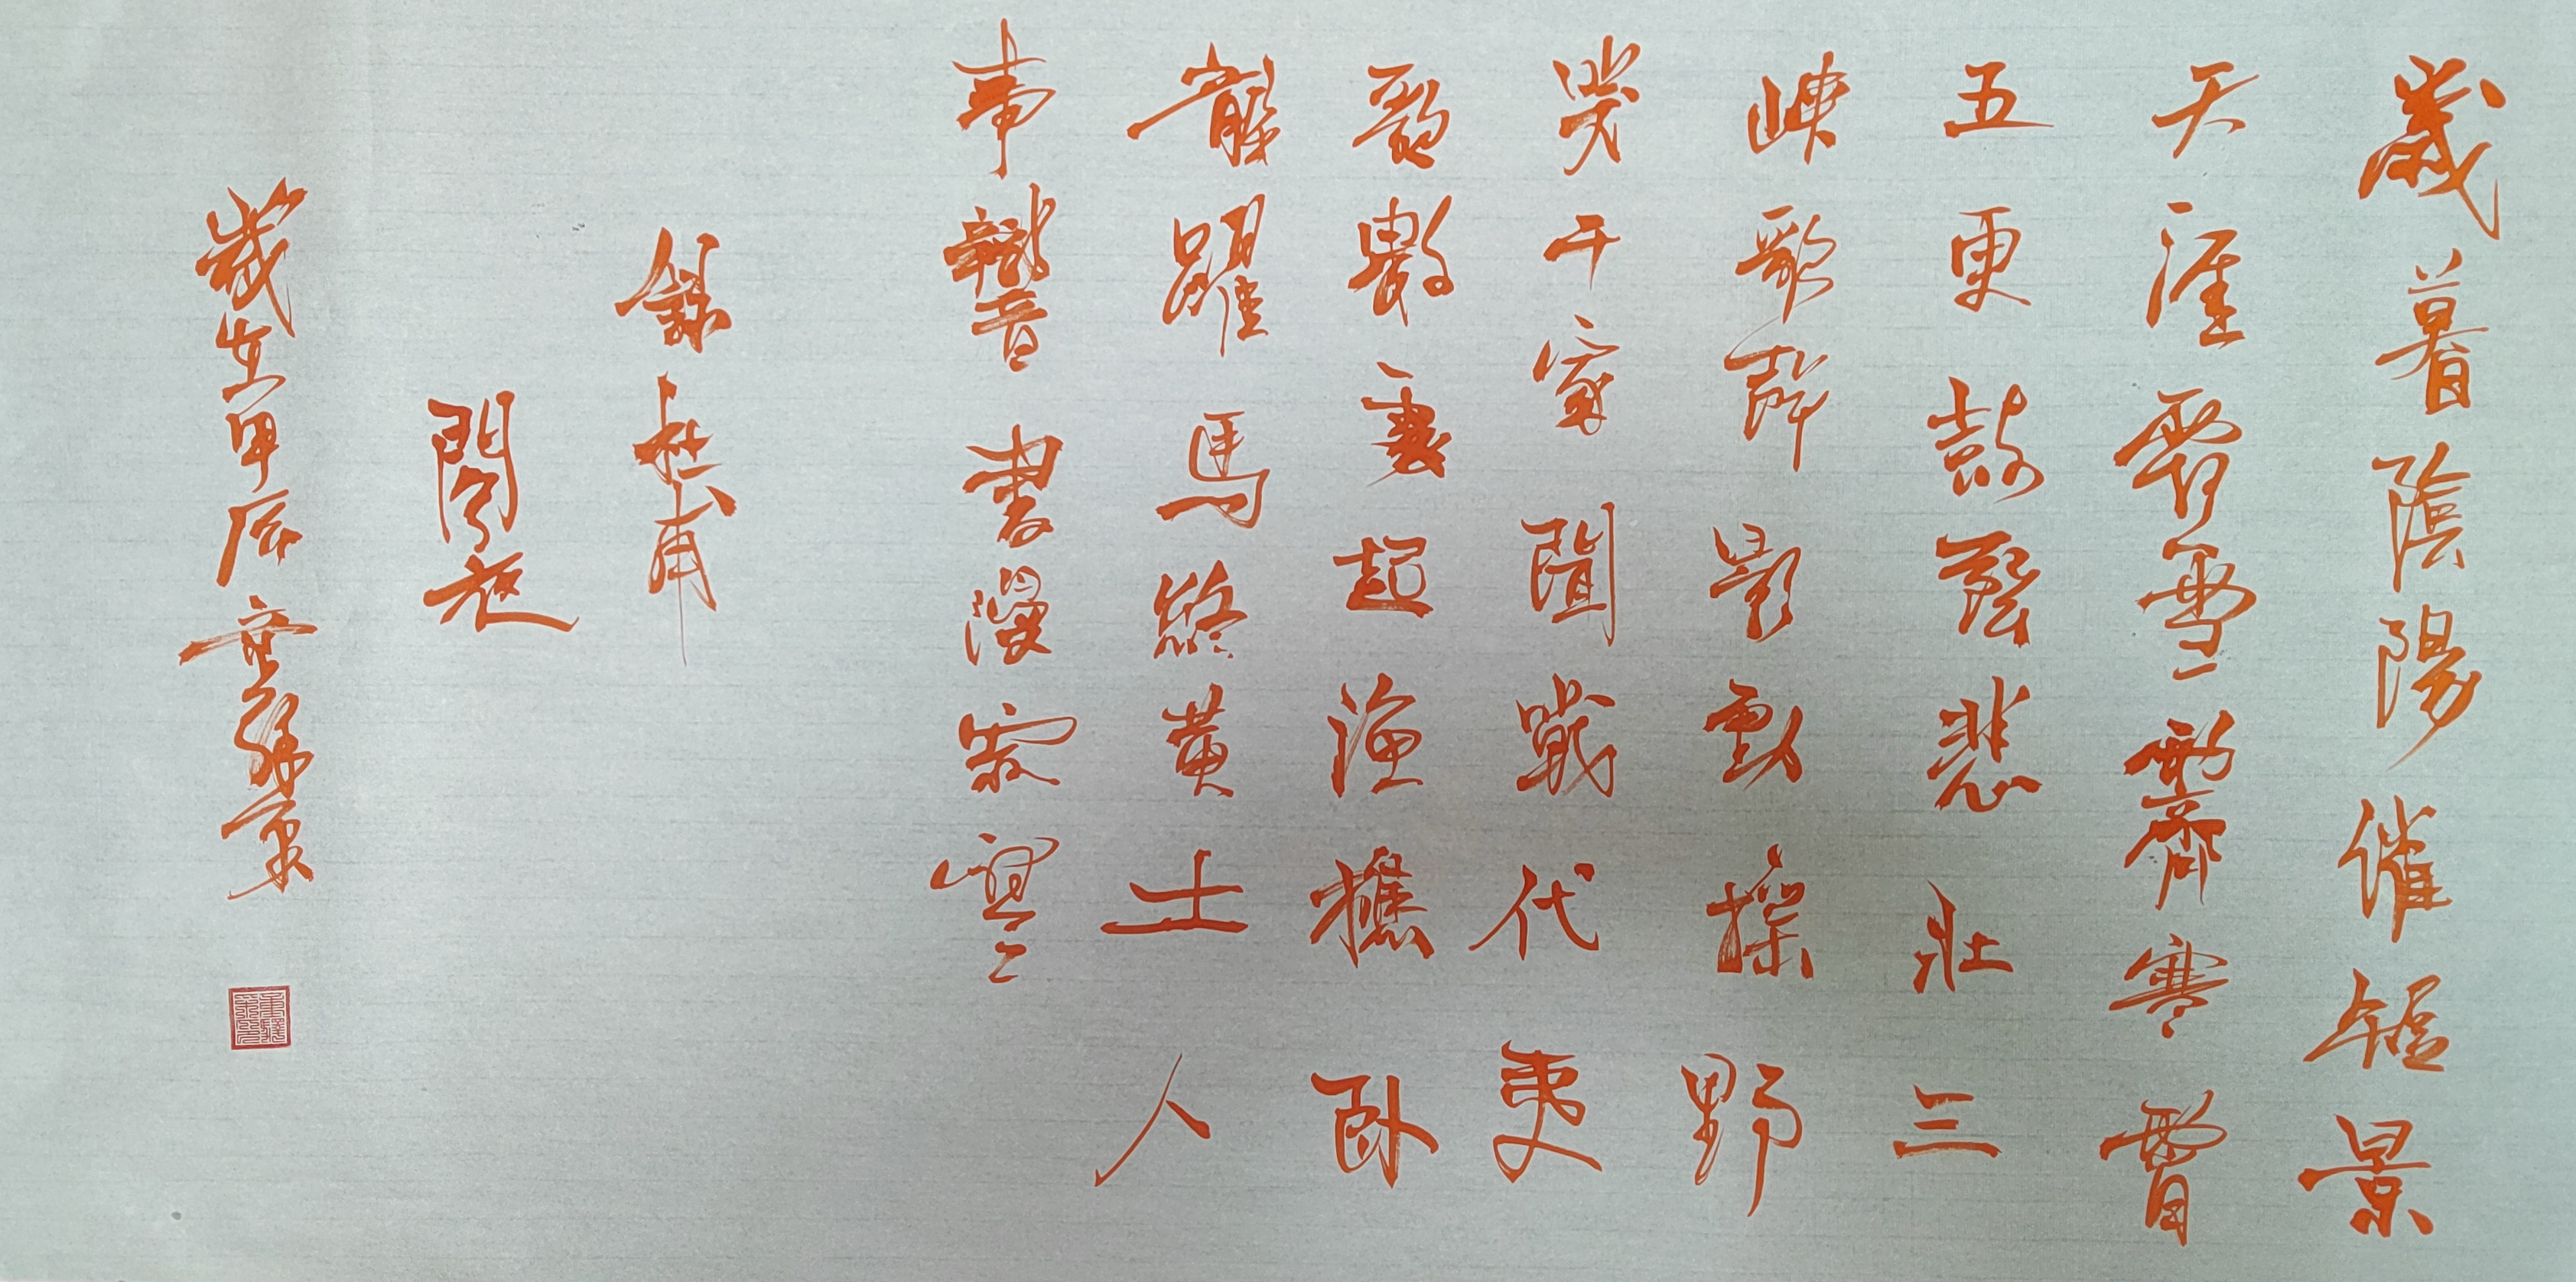 歲暮陰陽催短景
天涯霜雪霽寒霄
五更鼓聲悲壯三
峽歌影動搖野
哭千家聞戰代夷
歌數處起漁樵臥
龍躍馬終黃土人
事音書漫寂寥
錄杜甫
閣夜
歲在甲辰